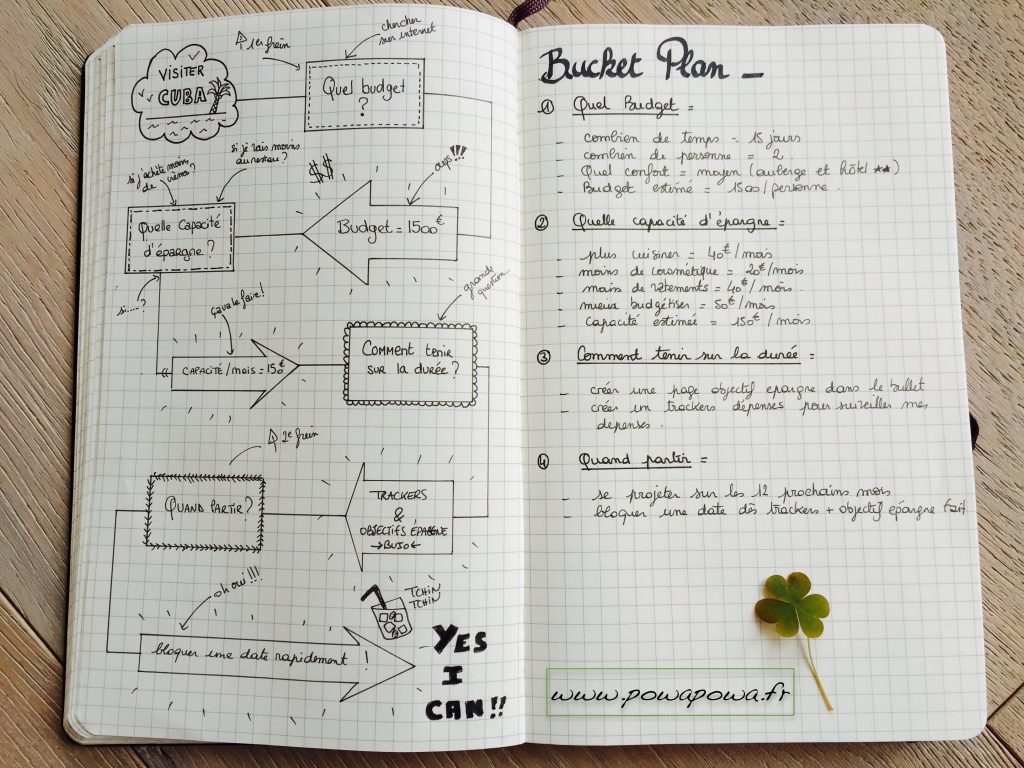 VISITER
CUBA
1er frein
chercher
sur internet
Quel budget
?
si j'achète moins
de crèmes?
si je vais moins
au resteau?
$$
oups!!!
Budget = 1500€
Quelle Capacité
d'épargne?
si....?
ça va le faire!
grande
question...
CAPACITÉ/MOIS = 150€
Comment tenir
sur la durée?
2e frein
QUAND PARTIR?
TRACKERS
&
OBJECTIFS ÉPARGNE
→BUJO←
oh oui!!!
TCHIN
TCHIN
bloquer une date rapidement !
YES
I
CAN!!
Bucket Plan _
1 Quel Budget =
_ combien de temps = 15 jours
_ combien de personne = 2
_ Quel confort = moyen (auberge et hôtel **)
_ Budget estimé = 1500/personne.
2 Quelle capacité d'épargne =
_ plus cuisiner = 40€/mois
_ moins de cosmétique = 20€/mois
_ moins de vêtements = 40€/mois.
_ mieux budgétiser = 50€/mois
_ capacité estimée = 150€/mois
3 Comment tenir sur la durée =
_ créer une page objectif epargne dans le bullet
_ créer un trackers dépenses pour surveiller mes
dépenses.
4 Quand partir =
_ se projeter sur les 12 prochains mois
_ bloquer une date dès trackers + objectif épargne fait
www.powapowa.fr